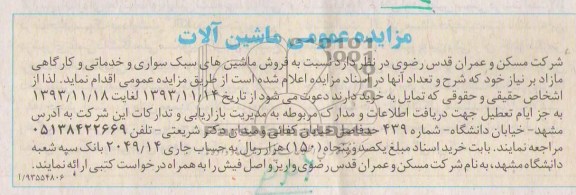 مزایده عمومی ماشین آلات
شرکت مسکن و عمران قدس رضوی در نظر دارد نسبت به فروش ماشین های سبک سواری و خدماتی و کارگاهی
مازاد بر نیاز خود که شرح و تعداد آنها در اسناد مزایده اعلام شده است از طریق مزایده عمومی اقدام نماید. لذا از
اشخاص حقیقی و حقوقی که تمایل به خرید دارند دعوت می شود از تاریخ ۱۳۹۳/۱۱/۱۴ لغایت ۱۳۹۳/۱۱/۱۸
به جز ایام تعطیل جهت دریافت اطلاعات و مدارک مربوطه به مدیریت بازاریابی و تدارکات این شرکت به آدرس
مشهد- خیابان دانشگاه- شماره ۴۳۹ حدفاصل خیابان کفائی و میدان دکتر شریعتی - تلفن ۰۵۱۳۸۴۲۲۶۶۹
مراجعه نمایند. بابت خرید اسناد مبلغ یکصد و پنجاه (۱۵۰) هزار ریال به حساب جاری ۲۰۴۹/۱۴ بانک سپه شعبه
دانشگاه مشهد، به نام شرکت مسکن و عمران قدس رضوی واریز و اصل فیش را به همراه درخواست کتبی ارائه نمایند.
۱/۹۳۵۵۴۸۰۶